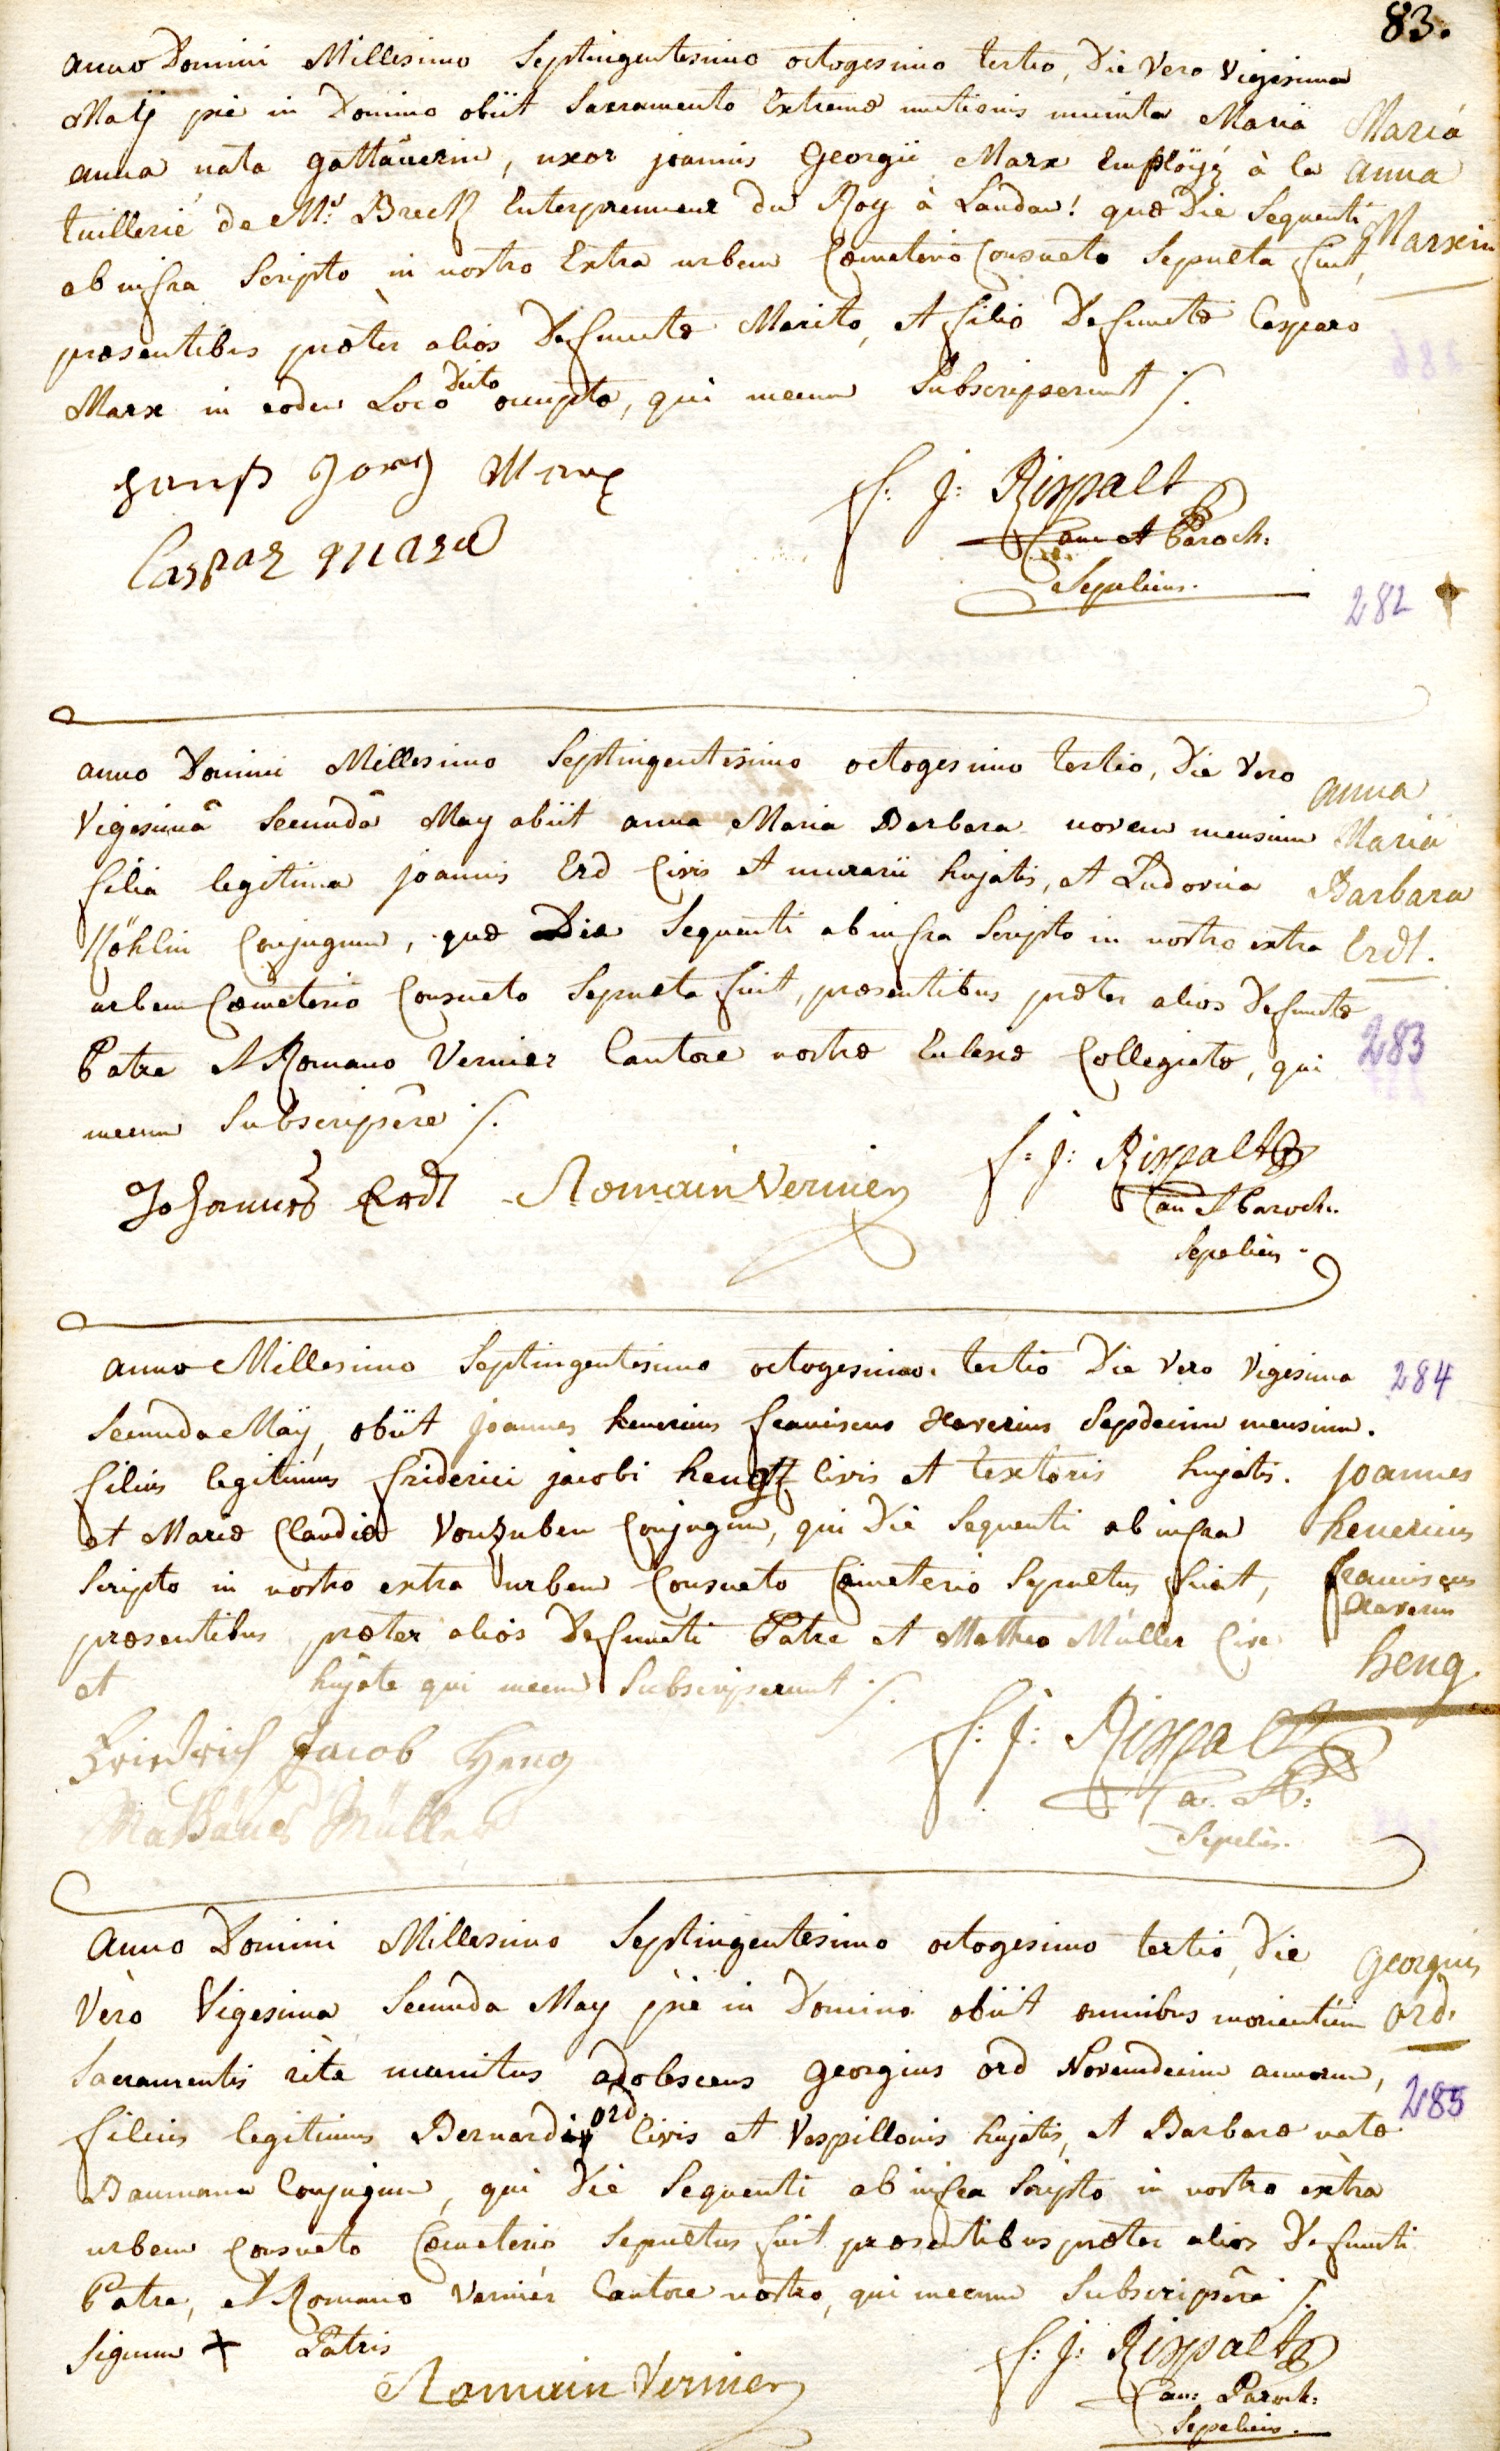 83.
anno Domini Millesimo Septingentesimo octogesimo tertio, Die Vero Vigesima
Maÿ pie in Domino obiit Sacramento Extremæ unctionis munita Maria
Maria
anna nata gattäuerin, uxor joannis Georgii Marx Emploÿé à la
anna
tuillerié de Mr. Breck Enterpreneur du Roy à Landau! quæ Die Sequenti
Marxin
ab infra Scripto in nostro Extra urbem Cœmeterio Consueto Sepulta fuit,
præsentibus præter alios Defunctæ Marito, et filio Defunctæ Casparo
Marx in eodem Loco Dicto occupto, qui mecum Subscripserunt ·/.
Hanß Jorg Marx
f: j: Rispalt
Caspar Marx
Can et Paroch:
Sepeliens.
282
anno Domini Millesimo Septingentesimo octogesimo tertio, Die Vero
anna
Vigesimâ Secundâ May obiit anna Maria Barbara novem mensium
Maria
filia legitima joannis Erd Civis et murarii hujatis, et Ludovica
Barbara
Köhlin Conjugum, quæ Die Sequenti ab infra Scripto in nostro extra
Erdt.
urbem Cœmeterio Consueto Sepulta fuit, præsentibus præter alios Defunctæ
Patre et Romano Vernier Cantore nostræ Eclesiæ Collegiatæ, qui
283
mecum Subscripsêre ·/.
Johannes Erdt
Romain Vernier
f: j: Rispalt
Can et Paroch:
Sepeliens.
anno Millesimo Septingentesimo octogesimo tertio Die Vero Vigesima
284
Secunda Maÿ, obiit joannes henericus franciscus Xaverius Sepdecim mensium.
filius legitimus friderici jacobi heng civis et textoris hujatis.
joannes
et Mariæ Claudiæ Vonhuben Conjugum, qui Die Sequenti ab infra
henericus
Scripto in nostro extra urbem Consueto Cœmeterio Sepultus fuit,
franciscus
Xaverius
præsentibus præter alios Defuncti Patre et Matheo Müller Cive
heng
et hujate qui mecum Subscripserunt ·/.
Friedrich Jacob Heng
f: j: Rispalt
Mathäues Müller
Ca. et P:
Sepeliens.
Anno Domini Millesimo Septingentesimo octogesimo tertio, Die
Georgius
Vero Vigesima Secunda May pie in Domino obiit omnibus morientium
ord.
Sacramentis rite munitus adolescens georgius ord Novemdecim annorum,
285
filius legitimus Bernardi ord. Civis et Vespillonis hujatis, et Barbaræ natæ
Baumann Conjugum, qui Die Sequenti ab infra Scripto in nostro extra
urbem consueto Cœmeterio Sepultus fuit præsentibus præter alios Defuncti
Patre, et Romano Vernier Cantore nostro, qui mecum Subscripsêre ·/.
Signum + Patris
f: j: Rispalt
Romain Vernier
Can: Paroch:
Sepeliens.